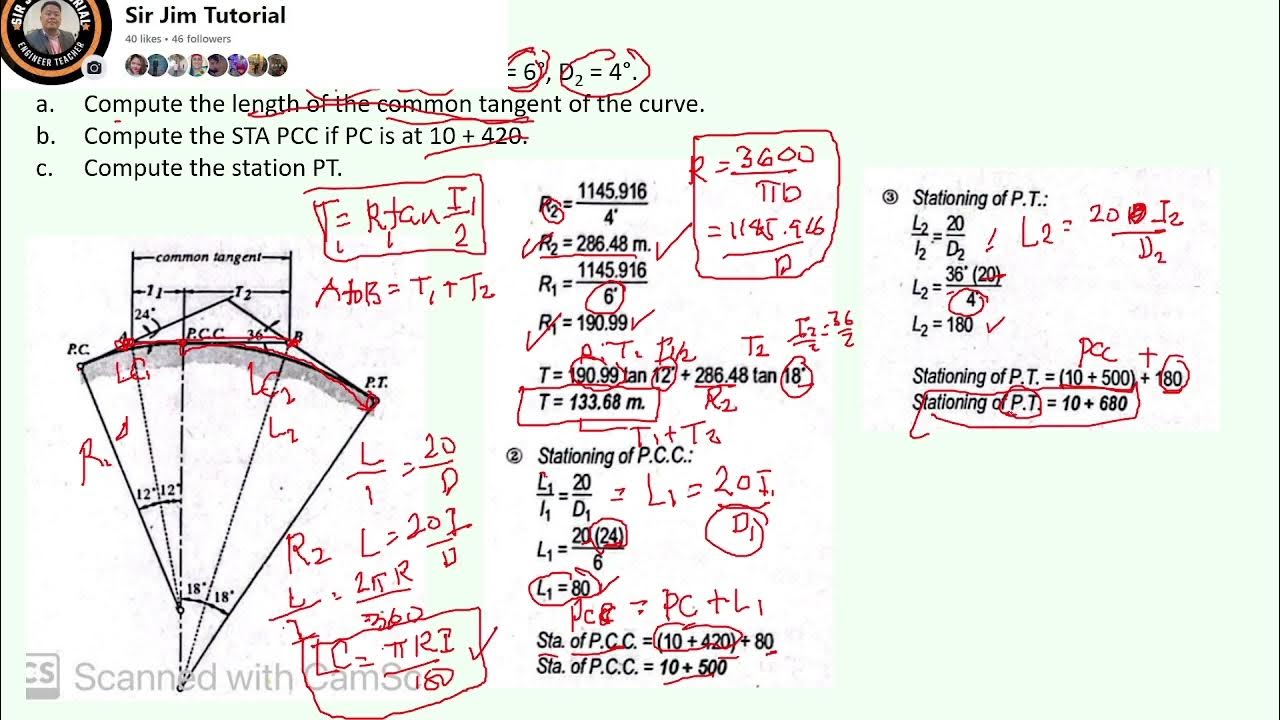 SIR JIM TUTORIAL
ENGINEER TEACHER
Sir Jim Tutorial
40 likes • 46 followers
= 6°, D2 = 4°.
a. Compute the length of the common tangent of the curve.
b. Compute the STA PCC if PC is at 10 + 420.
c. Compute the station PT.
T1 = R1 tan I1/2
A to B = T1 + T2
common tangent
T1 T2
24°
A P.C.C. 36° B
P.C.
LC1 LC2
P.T.
L2
R1
12° 12°
R2
18° 18°
L/I = 20/D
L = 20I/D
L/I = 2πR/360
LC = πRI/180
CS Scanned with CamSc
R2 = 1145.916/4°
R2 = 286.48 m.
R1 = 1145.916/6°
R1 = 190.99
R = 3600/πD
= 1145.916/D
R1 T1 I1/2 T2 I2/2 = 36/2
T = 190.99 tan 12° + 286.48 tan 18°
R2
T = 133.68 m.
T1 + T2
② Stationing of P.C.C.:
L1/I1 = 20/D1 = L1 = 20I1/D1
L1 = 20 (24)/6
L1 = 80
PCC = PC + L1
Sta. of P.C.C. = (10 + 420) + 80
Sta. of P.C.C. = 10 + 500
③ Stationing of P.T.:
L2/I2 = 20/D2 L2 = 20 I2/D2
L2 = 36° (20)/4°
L2 = 180
PCC +
Stationing of P.T. = (10 + 500) + 180
Stationing of P.T. = 10 + 680